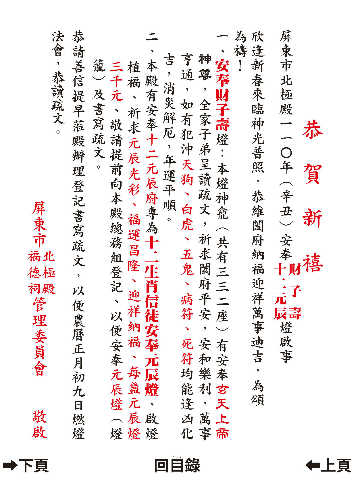 恭賀新禧
屏東市北極殿一一〇年（辛丑）安奉財子壽十二元辰燈啟事
欣逢新春來臨神光普照，恭維閤府納福迎祥萬事迪吉，為頌
為禱！
一、安奉財子壽燈：本燈神龕（共有三三二座）有安奉玄天上帝
神尊，全家子弟呈讀疏文，祈求閤府平安，安和樂利，萬事
亨通，如有犯沖天狗、白虎、五鬼、病符、死符均能逢凶化
吉，消災解厄，年運平順。
二、本殿有安奉十二元辰府專為十二生肖信徒安奉元辰燈，啟燈
植福，祈求元辰光彩、福運昌隆、迎祥納福、每盞元辰燈
三千元、敬請提前向本殿總務組登記、以便安奉元辰燈（燈
籠）及書寫疏文。
恭請善信提早蒞殿辦理登記書寫疏文，以便農曆正月初九日燃燈
法會，恭讀疏文。
屏東市北極殿福德祠管理委員會　敬啟
下頁
回目錄
上頁